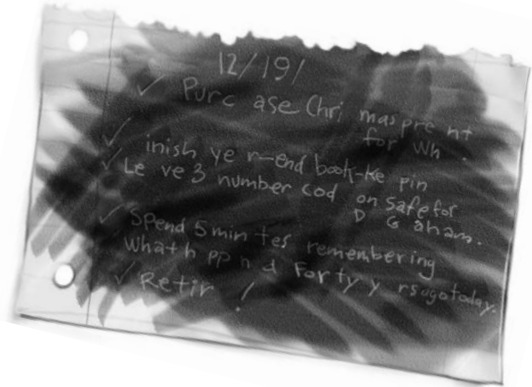 12/19/
Purc ase Chri mas pre nt
for Wh
inish ye r-end book-ke pin
Le ve 3 number cod on safe for
D G aham.
Spend 5 min tes remembering
what h pp n d Forty y rs ago today.
Retir !